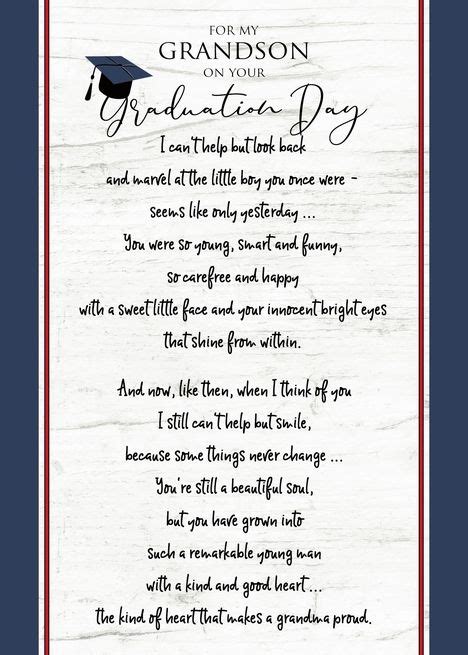 FOR MY
GRANDSON
ON YOUR
Graduation Day
I can't help but look back
and marvel at the little boy you once were -
seems like only yesterday ...
You were so young, smart and funny,
so carefree and happy
with a sweet little face and your innocent bright eyes
that shine from within.
And now, like then, when I think of you
I still can't help but smile,
because some things never change ...
You're still a beautiful soul,
but you have grown into
such a remarkable young man
with a kind and good heart ...
the kind of heart that makes a grandma proud.